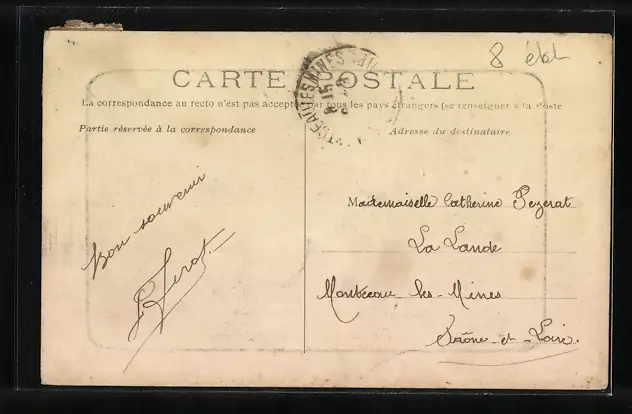 8
CARTE POSTALE
La correspondance au recto n'est pas acceptée par tous les pays étrangers (se renseigner à la Poste
Partie réservée à la correspondance
Adresse du destinataire
Bon souvenir
Mademaiselle Catherine Pezerat
La Lande
Montceau-les-Mines
Saône-et-Loire.